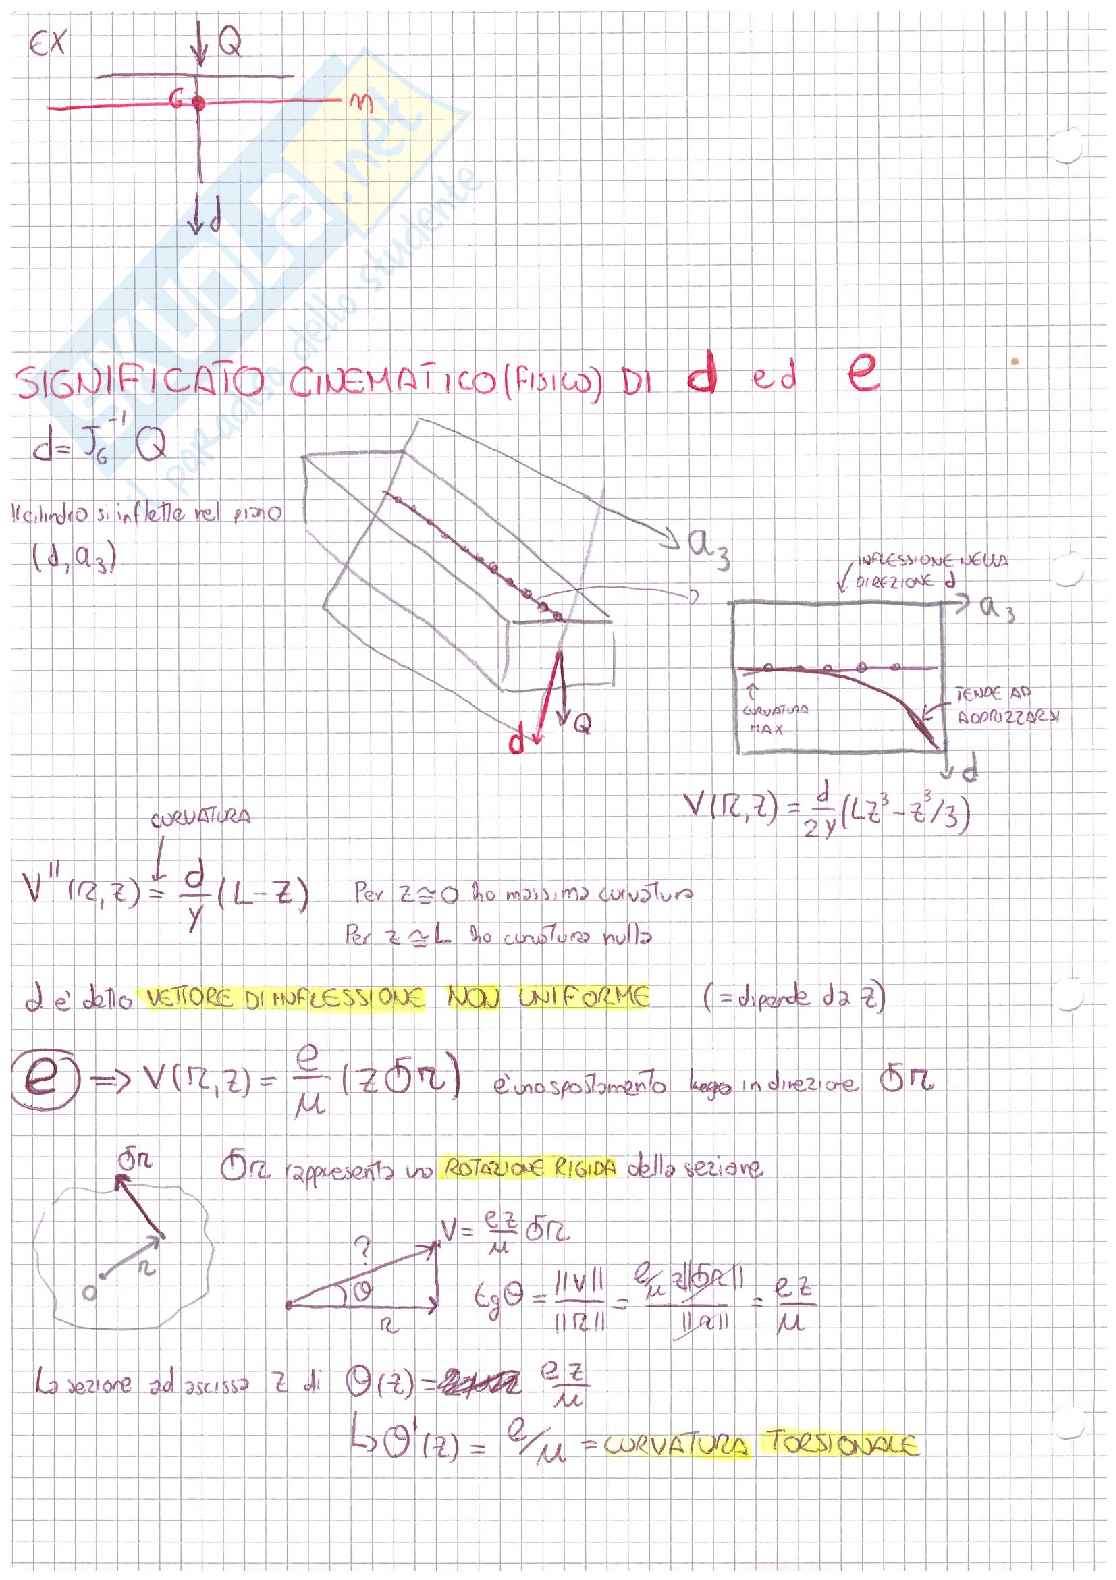 EX
Q
G
n
d
SKUOLA.net
il paradiso dello studente
SIGNIFICATO CINEMATICO (FISICO) DI d ed e
d = J_G^-1 Q
Il cilindro si inflette nel piano
(d, a₃)
a₃
d
Q
INFLESSIONE NELLA
DIREZIONE d
a₃
CURVATURA
MAX
TENDE AD
ADDRIZZARSI
d
V(r,z) = d/2Y (Lz³ - z³/3)
CURVATURA
V''(r,z) = d/Y (L-z) Per z≅0 ho massima curvatura
Per z≅L ho curvatura nulla
d e' detto VETTORE DI INFLESSIONE NON UNIFORME (= dipende da z)
e ⇒ V(r,z) = e/μ (z ϭr) è uno spostamento lungo in direzione ϭr
ϭr
r
O
ϭr rappresenta una ROTAZIONE RIGIDA della sezione
?
θ
r
V = ez/μ ϭr
tgθ = ||V||/||r|| = e/μ z||ϭr||/||r|| = ez/μ
La sezione ad ascissa z di θ(z) = ez/μ
↳ θ'(z) = e/μ = CURVATURA TORSIONALE